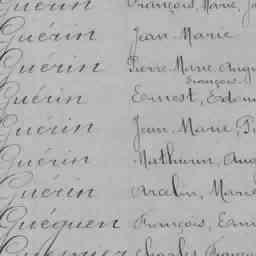 Guérin François, Marie, J
Guérin Jean-Marie
Guérin Pierre Marie, Augu
François
Guérin Ernest, Edou
Guérin Jean, Marie, Pi
Guérin Mathurin, Aug
Guérin Arcelin, Marie
Guéguen François, Ern
Charles, Franço